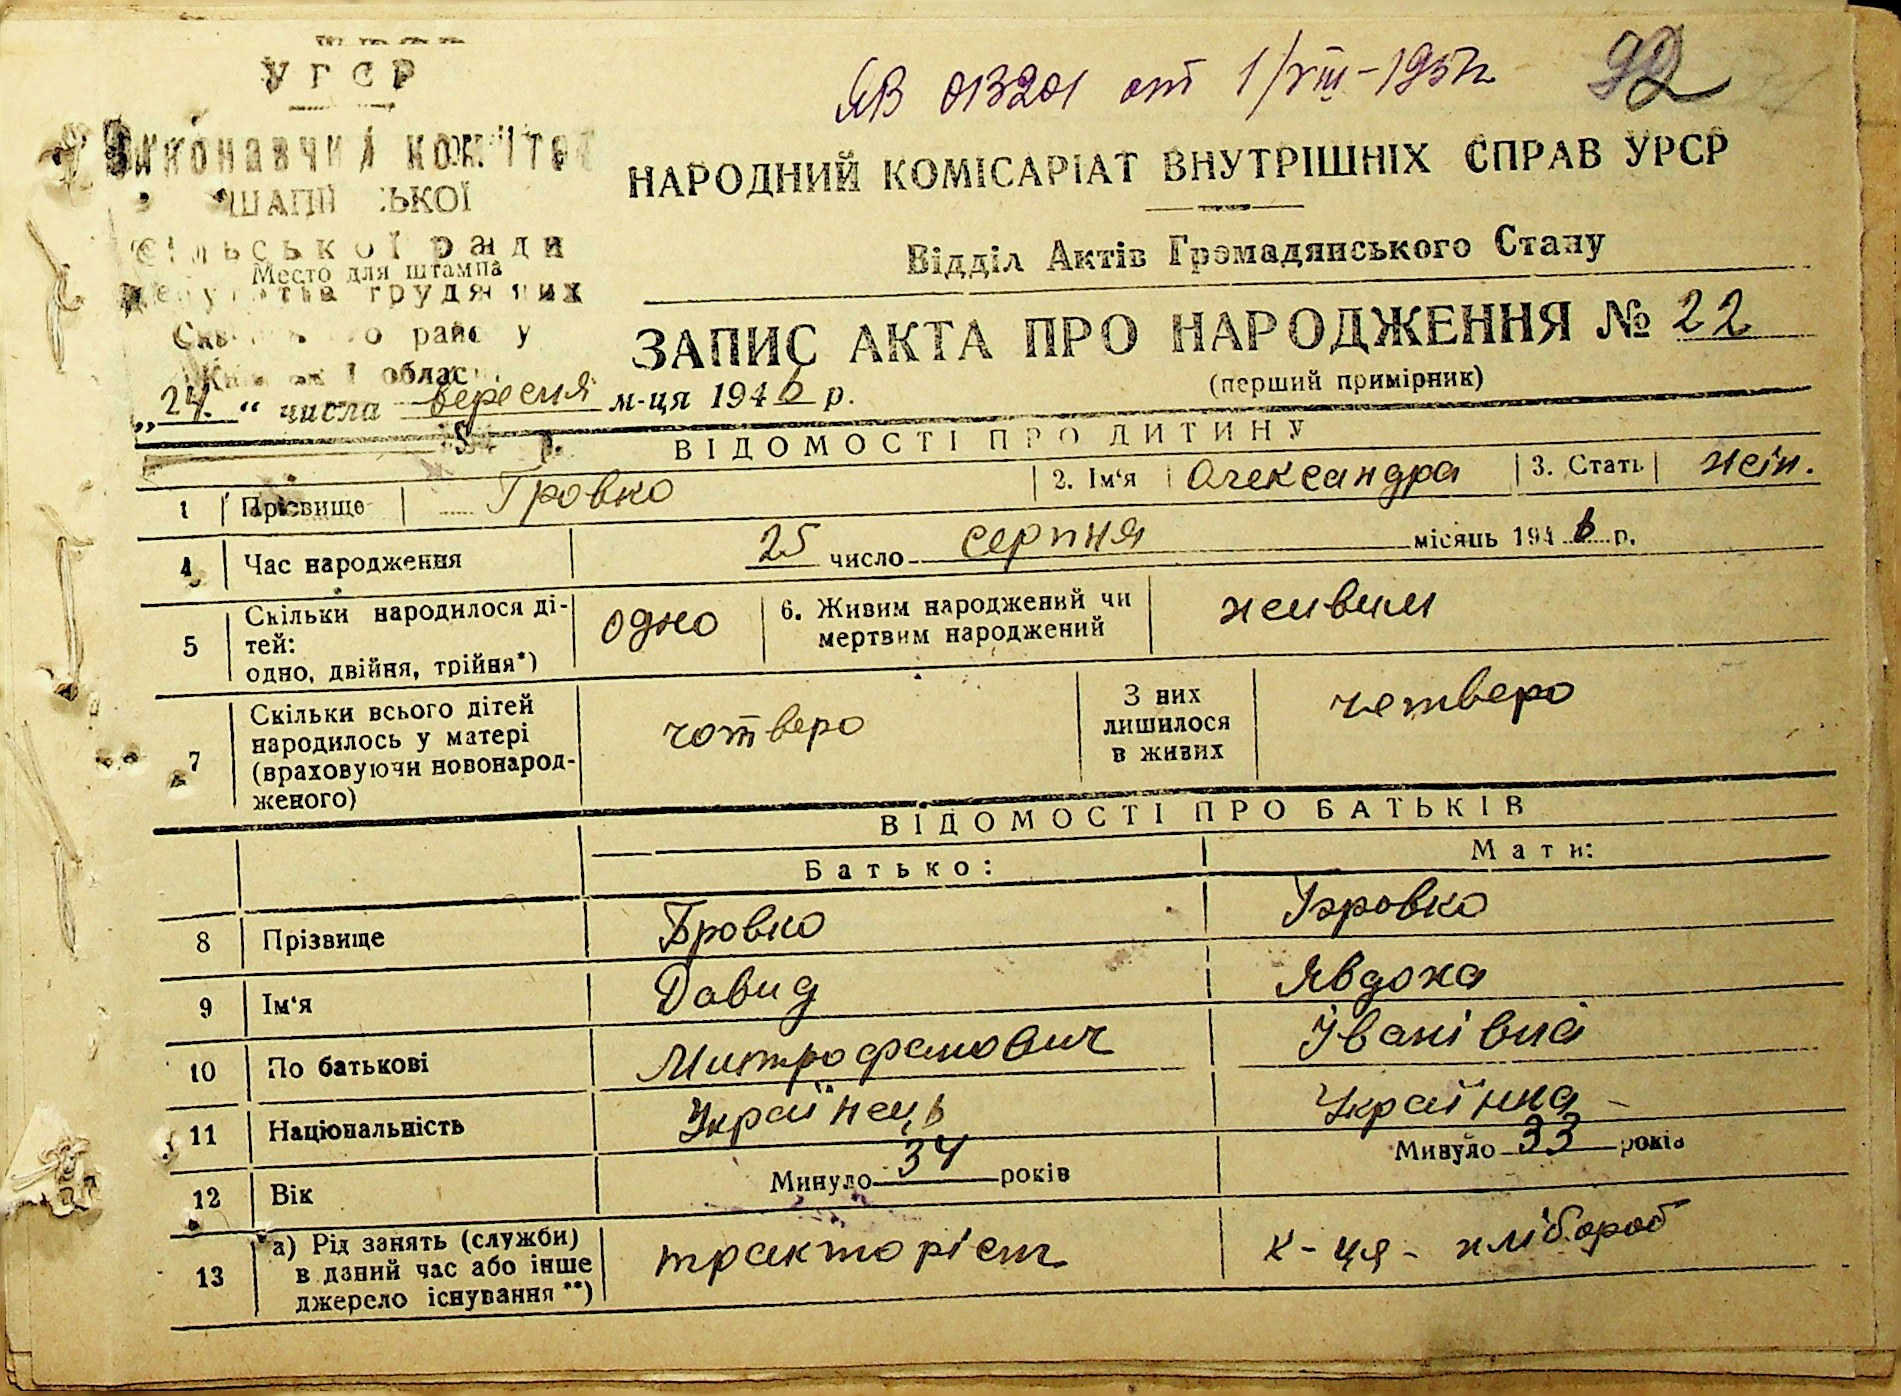 УРСР
ЯВ 013201 от 1/VIII-1957г.
92
Виконавчий комітет
НАРОДНИЙ КОМІСАРІАТ ВНУТРІШНІХ СПРАВ УРСР
ської
сільської ради
Место для штампа
Відділ Актів Громадянського Стану
депутатів трудящих
району
ЗАПИС АКТА ПРО НАРОДЖЕННЯ № 22
області
(перший примірник)
„24.“ числа вересня м-ця 1946 р.
ВІДОМОСТІ ПРО ДИТИНУ
1 Прізвище Бровко 2. Ім‘я Олександра 3. Стать жін.
4 Час народження 25 число серпня місяць 1946 р.
5 Скільки народилося ді-
тей:
одно, двійня, трійня*)
одно
6. Живим народжений чи
мертвим народжений
живим
7 Скільки всього дітей
народилось у матері
(враховуючи новонарод-
женого)
четверо
З них
лишилося
в живих
четверо
ВІДОМОСТІ ПРО БАТЬКІВ
Батько: Мати:
8 Прізвище Бровко Бровко
9 Ім‘я Давид Явдоха
10 По батькові Митрофанович Іванівна
11 Національність Українець Українка
12 Вік Минуло 34 років Минуло 33 років
13 а) Рід занять (служби)
в даний час або інше
джерело існування**)
тракторіст к-ця - хлібороб